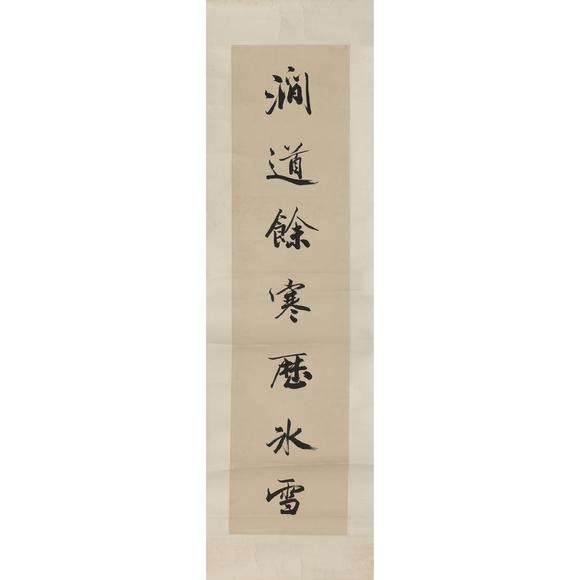 澗道餘寒歷冰雪